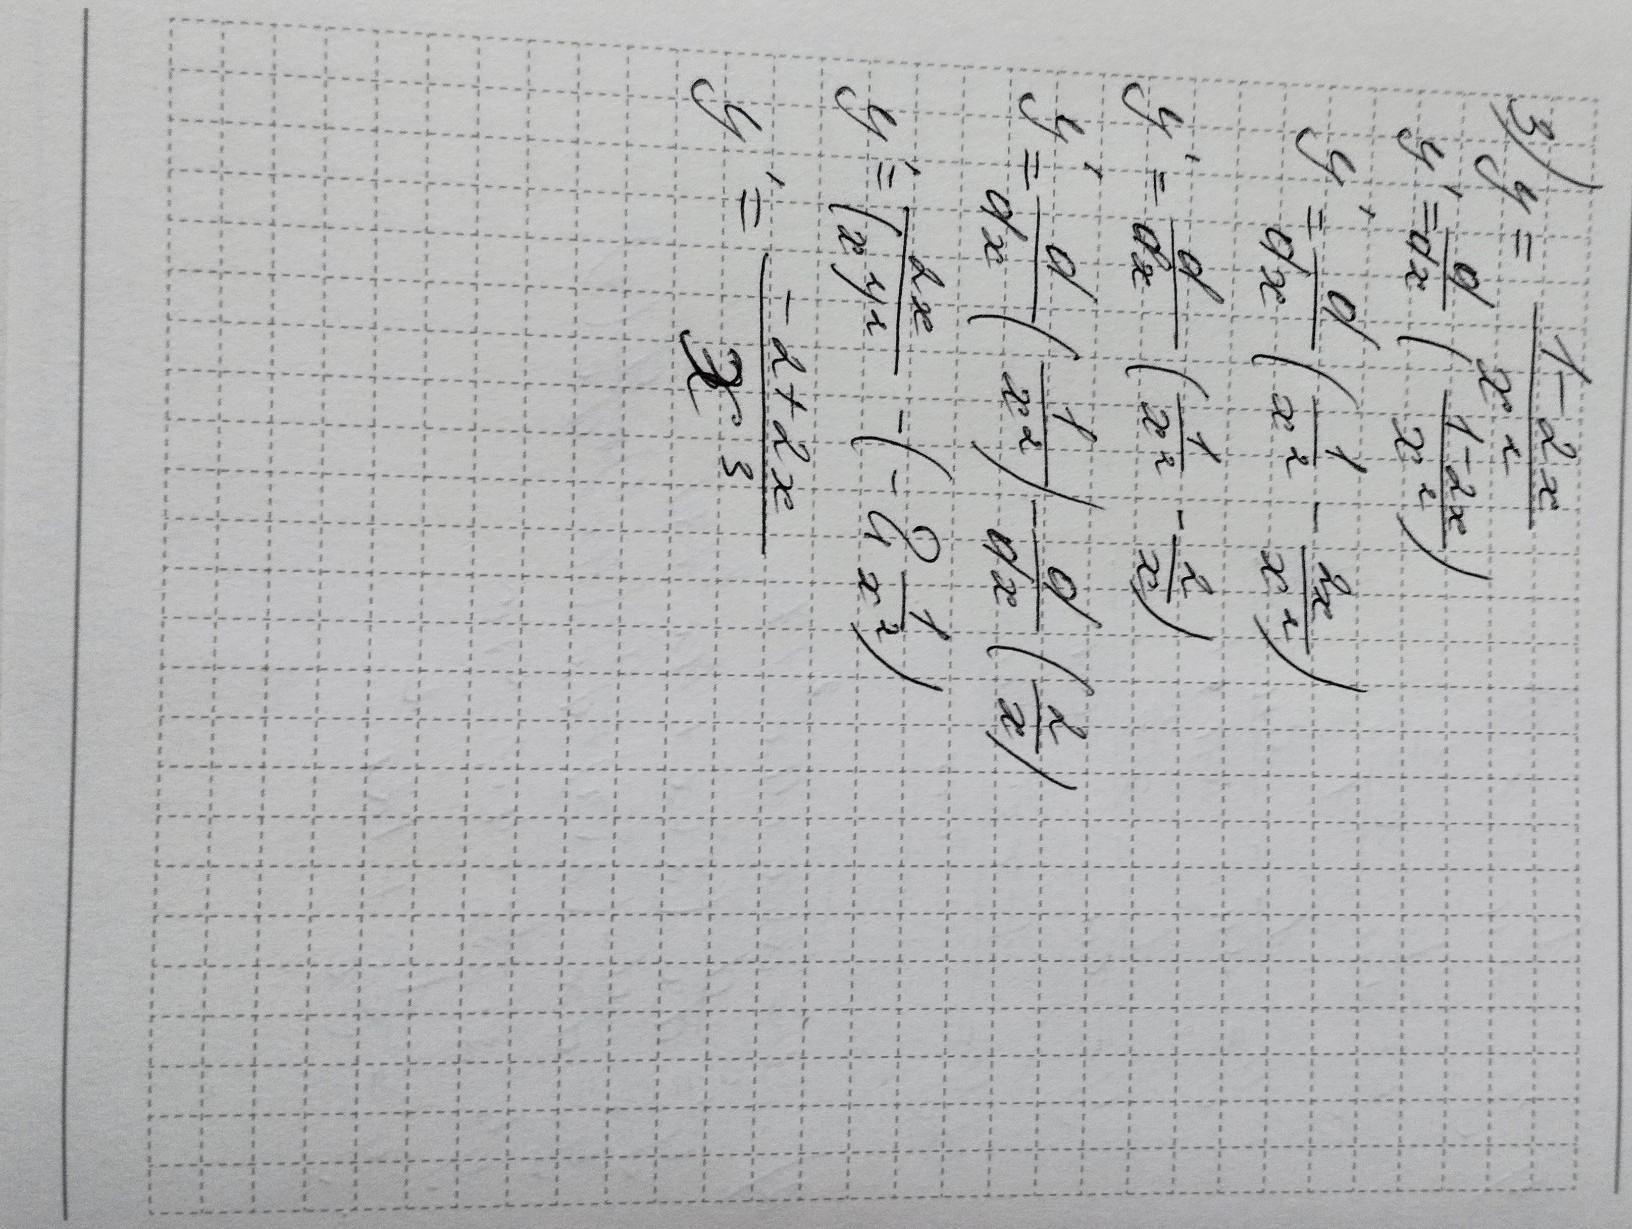 3) y = (1-2x)/x²
y' = d/dx ((1-2x)/x²)
y' = d/dx (1/x² - 2x/x²)
y' = d/dx (1/x² - 2/x)
y' = d/dx (1/x²) - d/dx (2/x)
y' = 2x/(x²)² - (-2 · 1/x²)
y' = (-2+2x)/x³